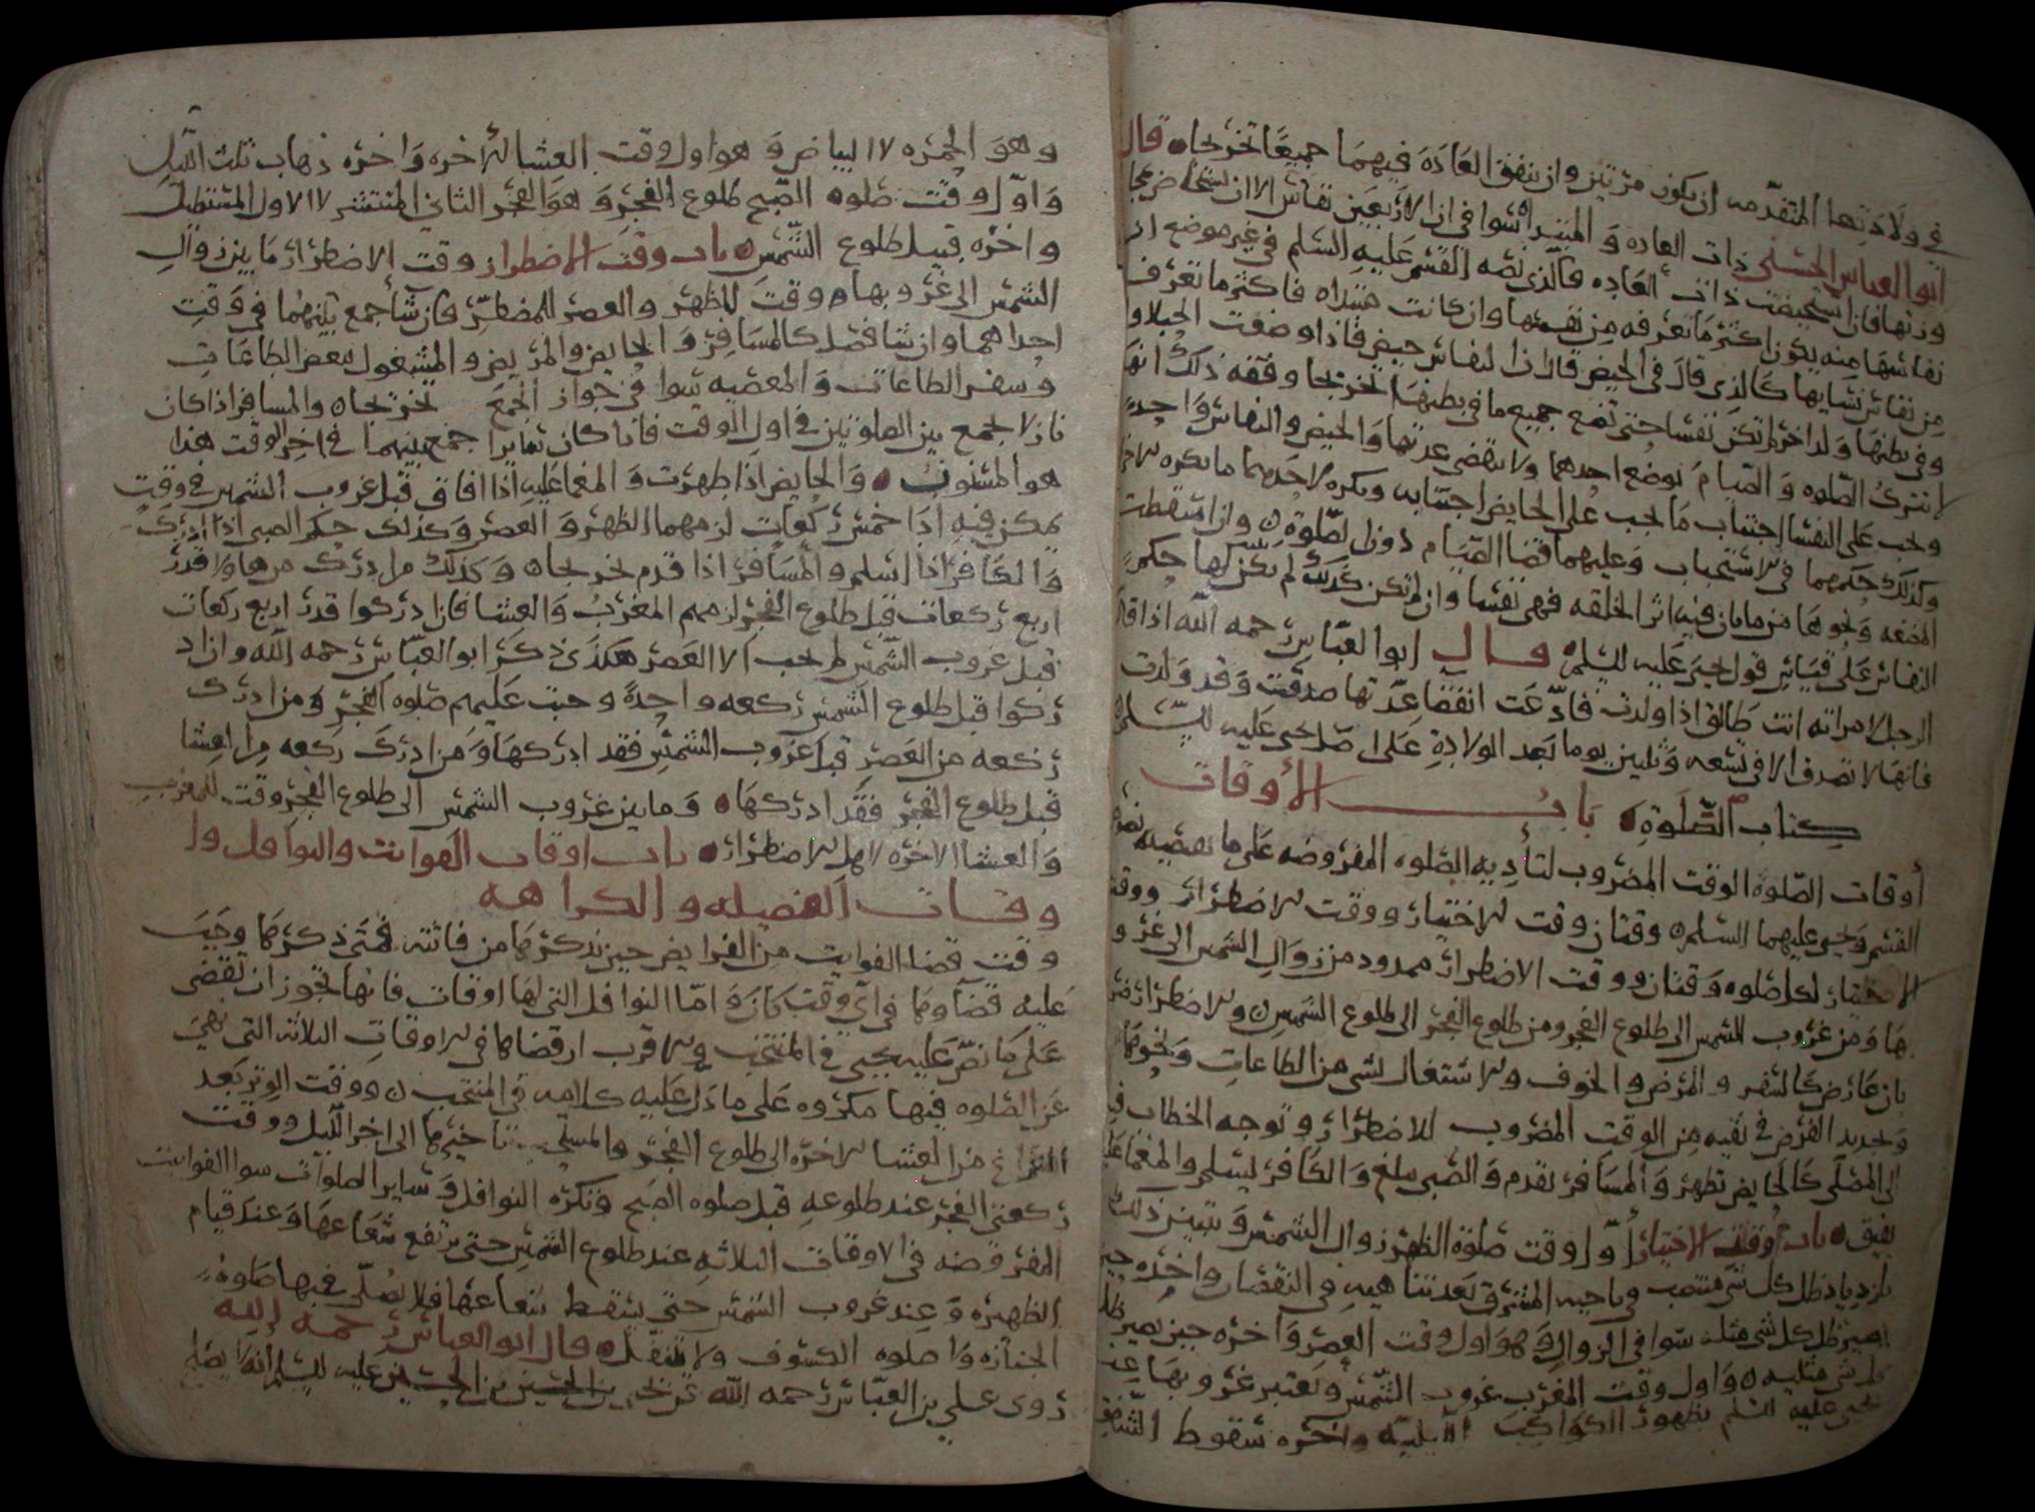 في ولادتها المتقدمه ان يكون مرتين وان تتفق العاده فيهما جميعا تخريجا ٥ قال
ابو العباس الحسني ذات العاده و المبتدا سوا في ان الاربعين نفاس الا ان
ودتها فان استحيضت ذات العاده فالذي نصه القسم عليه السلم في غير موضع ان
نفاسها منه يكون اكثر ما تعرفه من نفسها وان كانت مبتداه فاكثر ما تعرف
من نفاس نسايها كالذي قال في الحيض قال اذ النفاس حيض فاذا وضعت الحبلا و
وفي بطنها ولد اخر لم تكن نفسا حتى تضع جميع ما في بطنها تخريجا وفقه ذلك انها
لا تترك الصلوه و الصيام بوضع احدهما ولا تنقضي عدتها و الحيض و النفاس واحد
ويجب على النفسا اجتناب ما يجب على الحايض اجتنابه ويكره لاحدهما ما يكره للاخر
وكذلك حكمهما في الاستحباب وعليهما قضا الصيام دون الصلوة ٥ وان اسقطت
المضغه ونحوها مما بان فيه اثر الخلقه فهي نفسا وان لم تكن كذلك لم يكن لها حكم
النفاس على قياس قول يحيى عليه السلم ٥ قال ابو العباس رحمه الله اذا قال
الرجل لامراته انت طالق اذا ولدت فادعت انقضا عدتها صدقت وقد ولدت
فانها لا تصدق الا في تسعه وثلثين يوما بعد الولادة على اصل يحيى عليه السلم
كتاب الصلوة ٥ باب الأوقات
أوقات الصلوة الوقت المضروب لتأدية الصلوه المفروضه على ما يقتضيه نص
القسم ويحيى عليهما السلم ٥ وقتان وقت الاختيار ووقت الاضطرار ووقت
الاختيار لكل صلوه وقتان ووقت الاضطرار ممدود من زوال الشمس الى غرو
بها ومن غروب الشمس الى طلوع الفجر ومن طلوع الفجر الى طلوع الشمس ٥ والاضطرار
بان عارض كالسفر و المرض و الخوف والاشتغال بشي من الطاعات ونحوها
وتجديد الفرض في بقيه من الوقت المضروب للاضطرار وتوجه الخطاب في
الى المصلي كالحايض تطهر و المسافر يقدم و الصبي يبلغ و الكافر يسلم و المغما عليه
يفيق ٥ باب وقت الاختيار أول وقت صلوة الظهر زوال الشمس ويتبين ذلك
بازدياد ظل كل شي منتصب في ناحيه المشرق بعد تناهيه في النقصان واخره حين
يصير ظل كل شي مثله سوا في الزوال وهو اول وقت العصر واخره حين يصير ظل
كل شي مثليه ٥ واول وقت المغرب غروب الشمس ويعتبر غروبها عند
يحيى عليه السلم بظهور الكواكب الليليه واخره سقوط الشفق
وهو الحمره لا البياض و هو اول وقت العشا الأخره واخره ذهاب ثلث الليل
واول وقت صلوه الصبح طلوع الفجر وهو الفجر الثاني المنتشر لا الاول المستطيل
واخره قبيل طلوع الشمس ٥ باب وقت الاضطرار وقت الاضطرار ما بين زوال
الشمس الى غروبها ٥ وقت للظهر والعصر للمضطر فان شا جمع بينهما في وقت
احداهما وان شا فصل كالمسافر و الحايض والمريض و المشغول ببعض الطاعات
و سفر الطاعات و المعصيه سوا في جواز الجمع تخريجا ٥ والمسافر اذا كان
نازلا جمع بين الصلوتين في اول الوقت فاذا كان سايرا جمع بينهما في اخر الوقت هذا
هو المسنون ٥ و الحايض اذا طهرت و المغما عليه اذا افاق قبل غروب الشمس في وقت
يمكن فيه ادا خمس ركعات لزمهما الظهر و العصر وكذلك حكم الصبي اذا ادرك
و الكافر اذا اسلم و المسافر اذا قدم تخريجا ٥ وكذلك من ادرك من هاولا قدر
اربع ركعات قبل طلوع الفجر لزمهم المغرب و العشا فان ادركوا قدر اربع ركعات
قبل غروب الشمس لم يجب الا العصر هكذى ذكر ابو العباس رحمه الله وان اد
ركوا قبل طلوع الشمس ركعه واحدة وجبت عليهم صلوه الفجر ومن ادرك
ركعه من العصر قبل غروب الشمس فقد ادركها ومن ادرك ركعه من العشا
قبل طلوع الفجر فقد ادركها ٥ وما بين غروب الشمس الى طلوع الفجر وقت للمغرب
و العشا الاخره لاهل الاضطرار ٥ باب اوقات الفوايت والنوافل وا
وقات الفضيله و الكراهه
وقت قضا الفوايت من الفرايض حين يذكرها من فاتته فمتى ذكرها وجب
عليه قضاوها في اي وقت كان ٥ اما النوافل التي لها اوقات فانها تجوز ان تقضى
على ما نص عليه يحيى في المنتخب والاقرب ان قضاها في الاوقات الثلاثه التي نهي
عن الصلوه فيها مكروه على ما دل عليه كلامه في المنتخب ٥ ووقت الوتر بعد
الفراغ من العشا الاخره الى طلوع الفجر والمستحب تاخيرها الى اخر الليل ووقت
ركعتي الفجر عند طلوعه قبل صلوه الصبح وتكره النوافل وساير الصلوات سوا الفوايت
المفروضه في الاوقات الثلاثه عند طلوع الشمس حتى يرتفع شعاعها وعند قيام
الظهيره وعند غروب الشمس حتى يسقط شعاعها فلا يصلى فيها صلوة
الجنازه و لا صلوه الكسوف ولا يتنفل ٥ قال ابو العباس رحمه الله
روى علي بن العباس رحمه الله عن يحيى بن الحسين بن الحسين عليه السلم انه